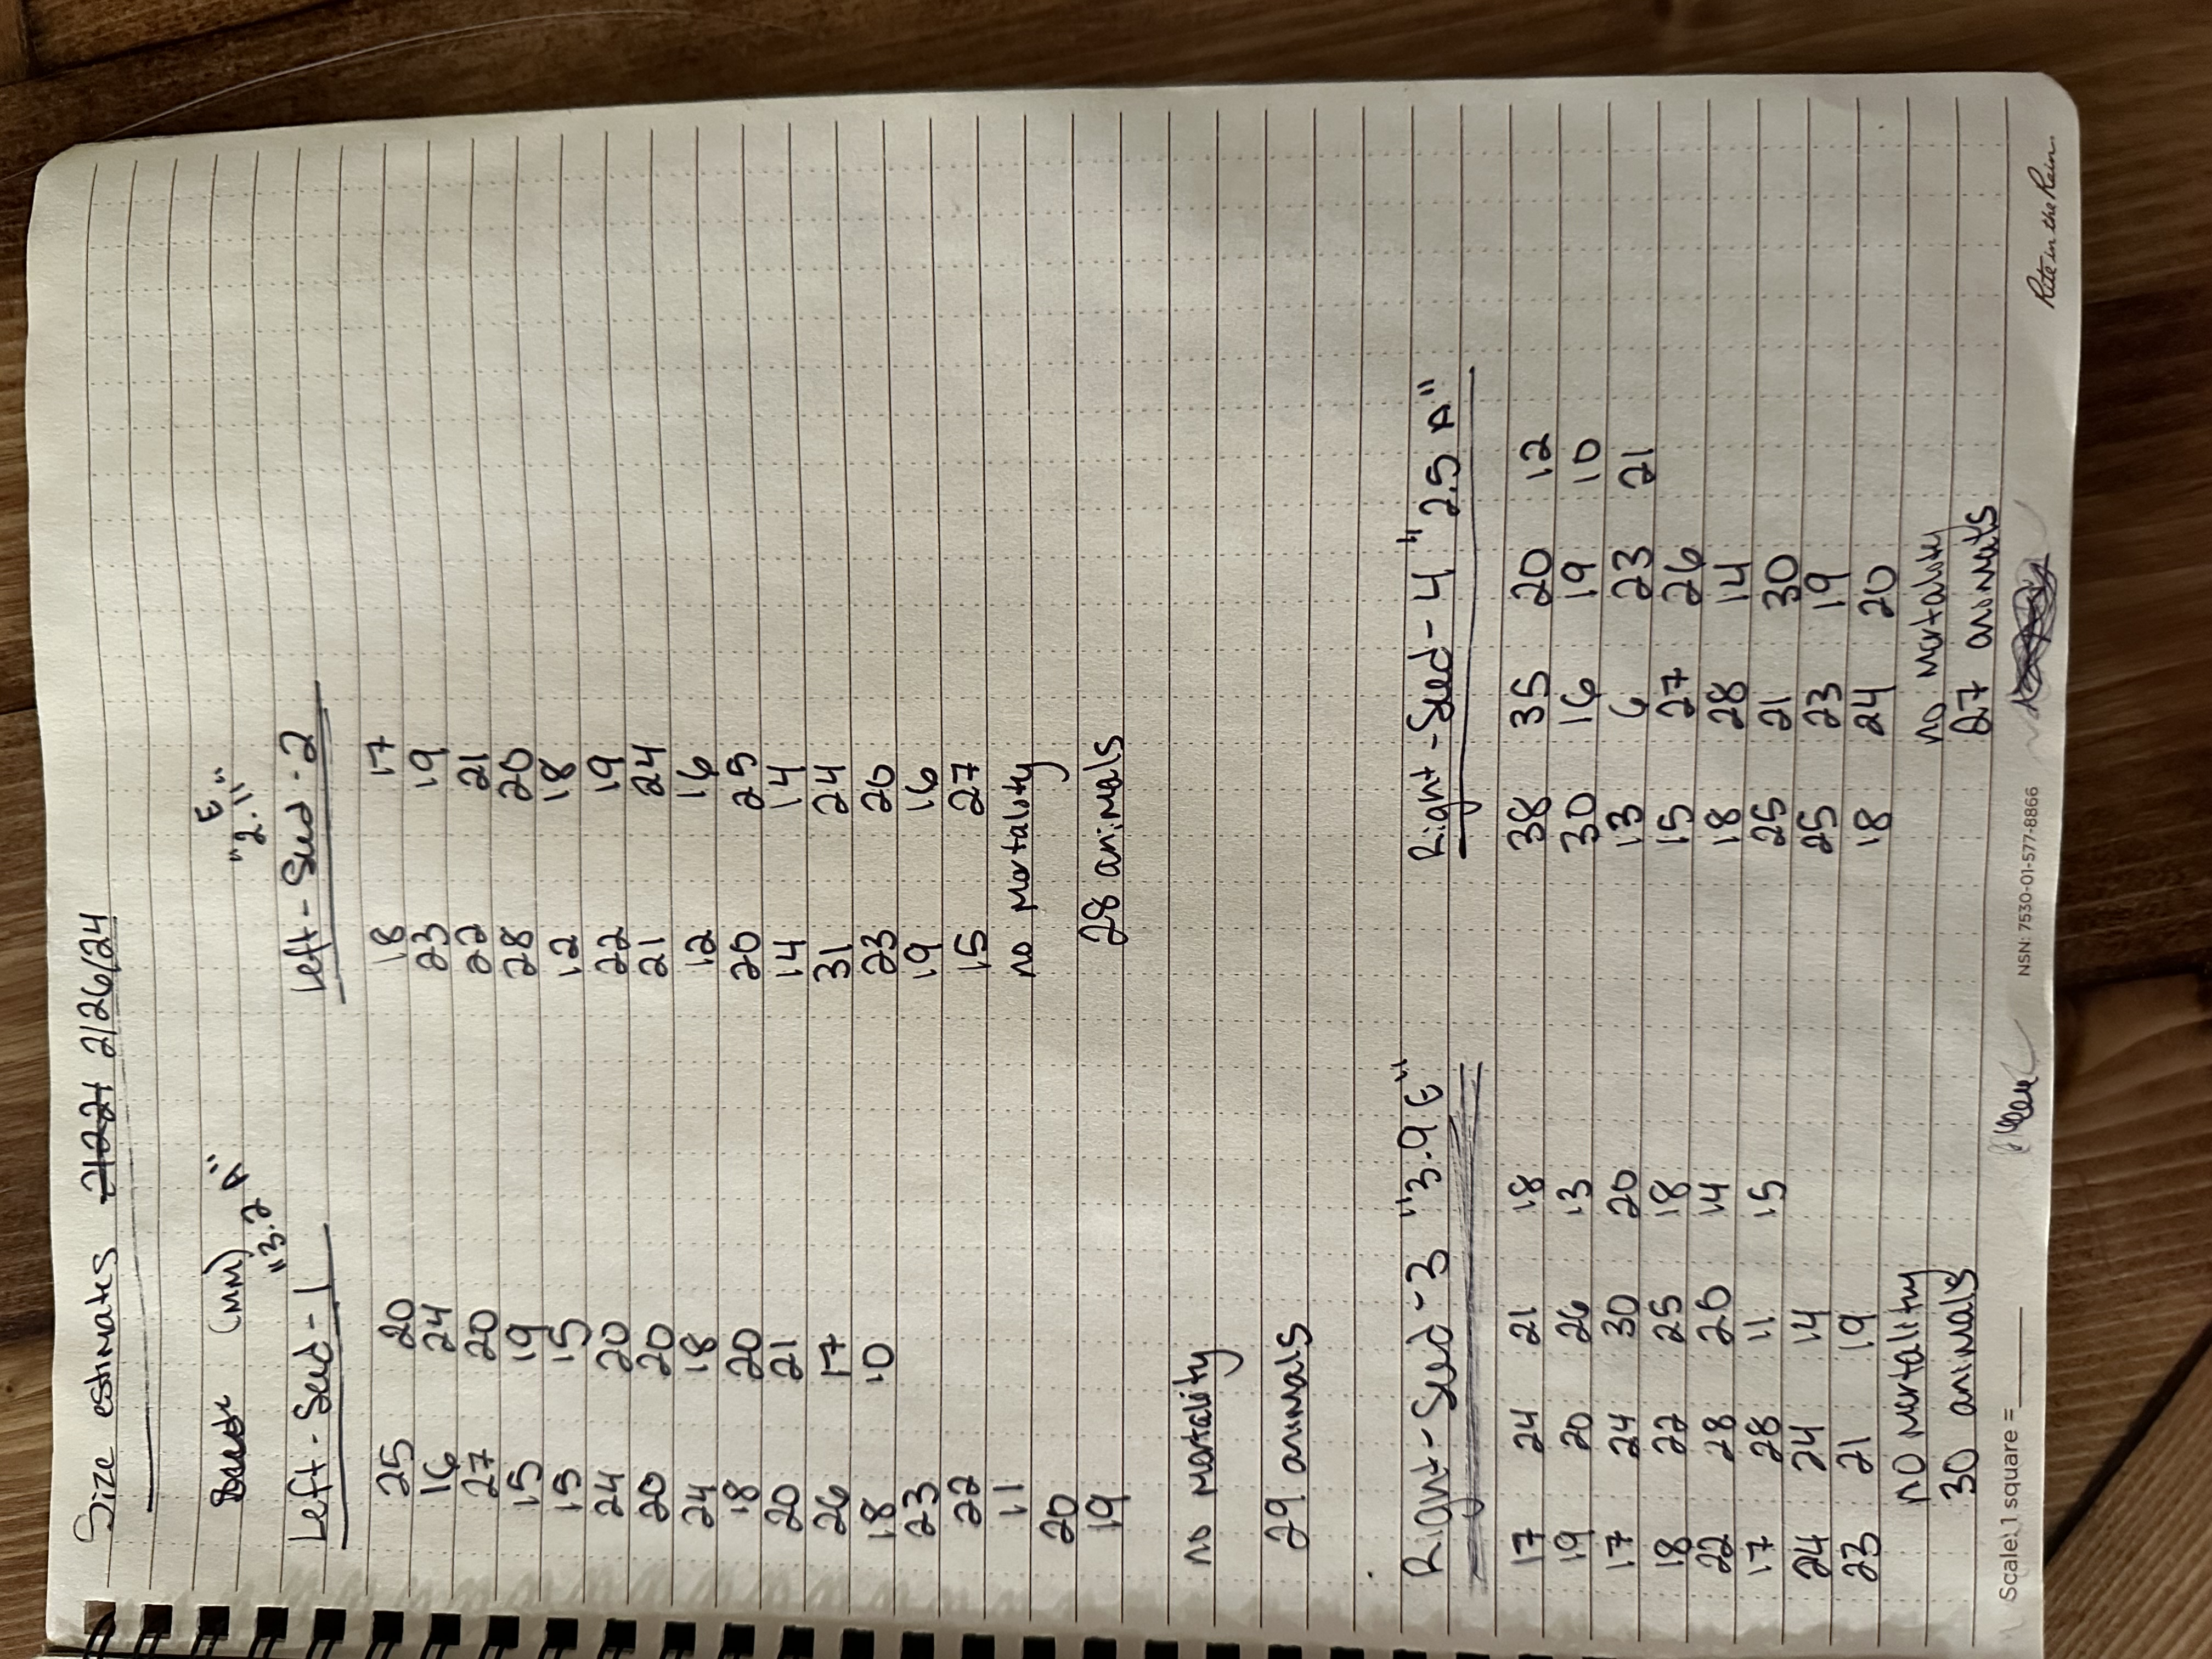 Size estimates 2/26/24
(MM)
"3.2 A"
Left-Seed-1
25 20
16 24
27 20
15 19
15 15
24 20
20 20
24 18
18 20
20 21
26 17
18 10
23
22
11
20
19
no mortality
29 animals
E
"2.11"
Left-Seed-2
18 17
23 19
22 21
28 20
12 18
22 19
21 24
12 16
20 25
14 14
31 24
23 20
19 16
15 27
no mortality
28 animals
Right-Seed-3 "3.9 E"
17 24 21 18
19 20 26 13
17 24 30 20
18 22 25 18
22 28 20 14
17 28 11 15
24 24 14
23 21 19
no mortality
30 animals
Right-Seed-4 "2.5 A"
38 35 20 12
30 16 19 10
13 6 23 21
15 27 26
18 28 14
25 21 30
25 23 19
18 24 20
no mortality
27 animals
Scale: 1 square =
NSN: 7530-01-577-8866
Rite in the Rain